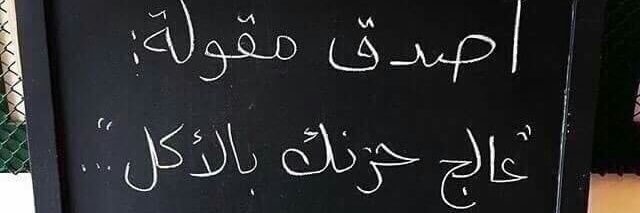 أصدق مقولة:
"عالج حزنك بالأكل"...